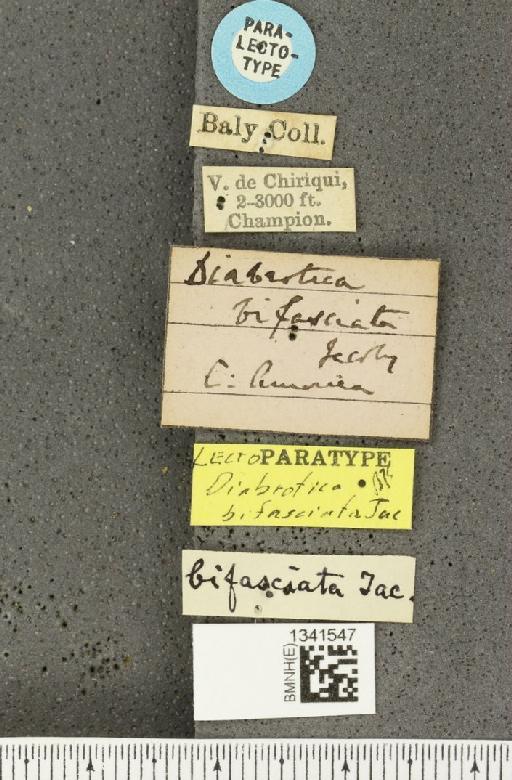 PARA-
LECTO-
TYPE
Baly Coll.
V. de Chiriqui,
2-3000 ft.
Champion.
Diabrotica
bifasciata
Jacoby
C. America
LECTOPARATYPE
Diabrotica
bifasciata Jac
bifasciata Jac.
1341547
BMNH(E)